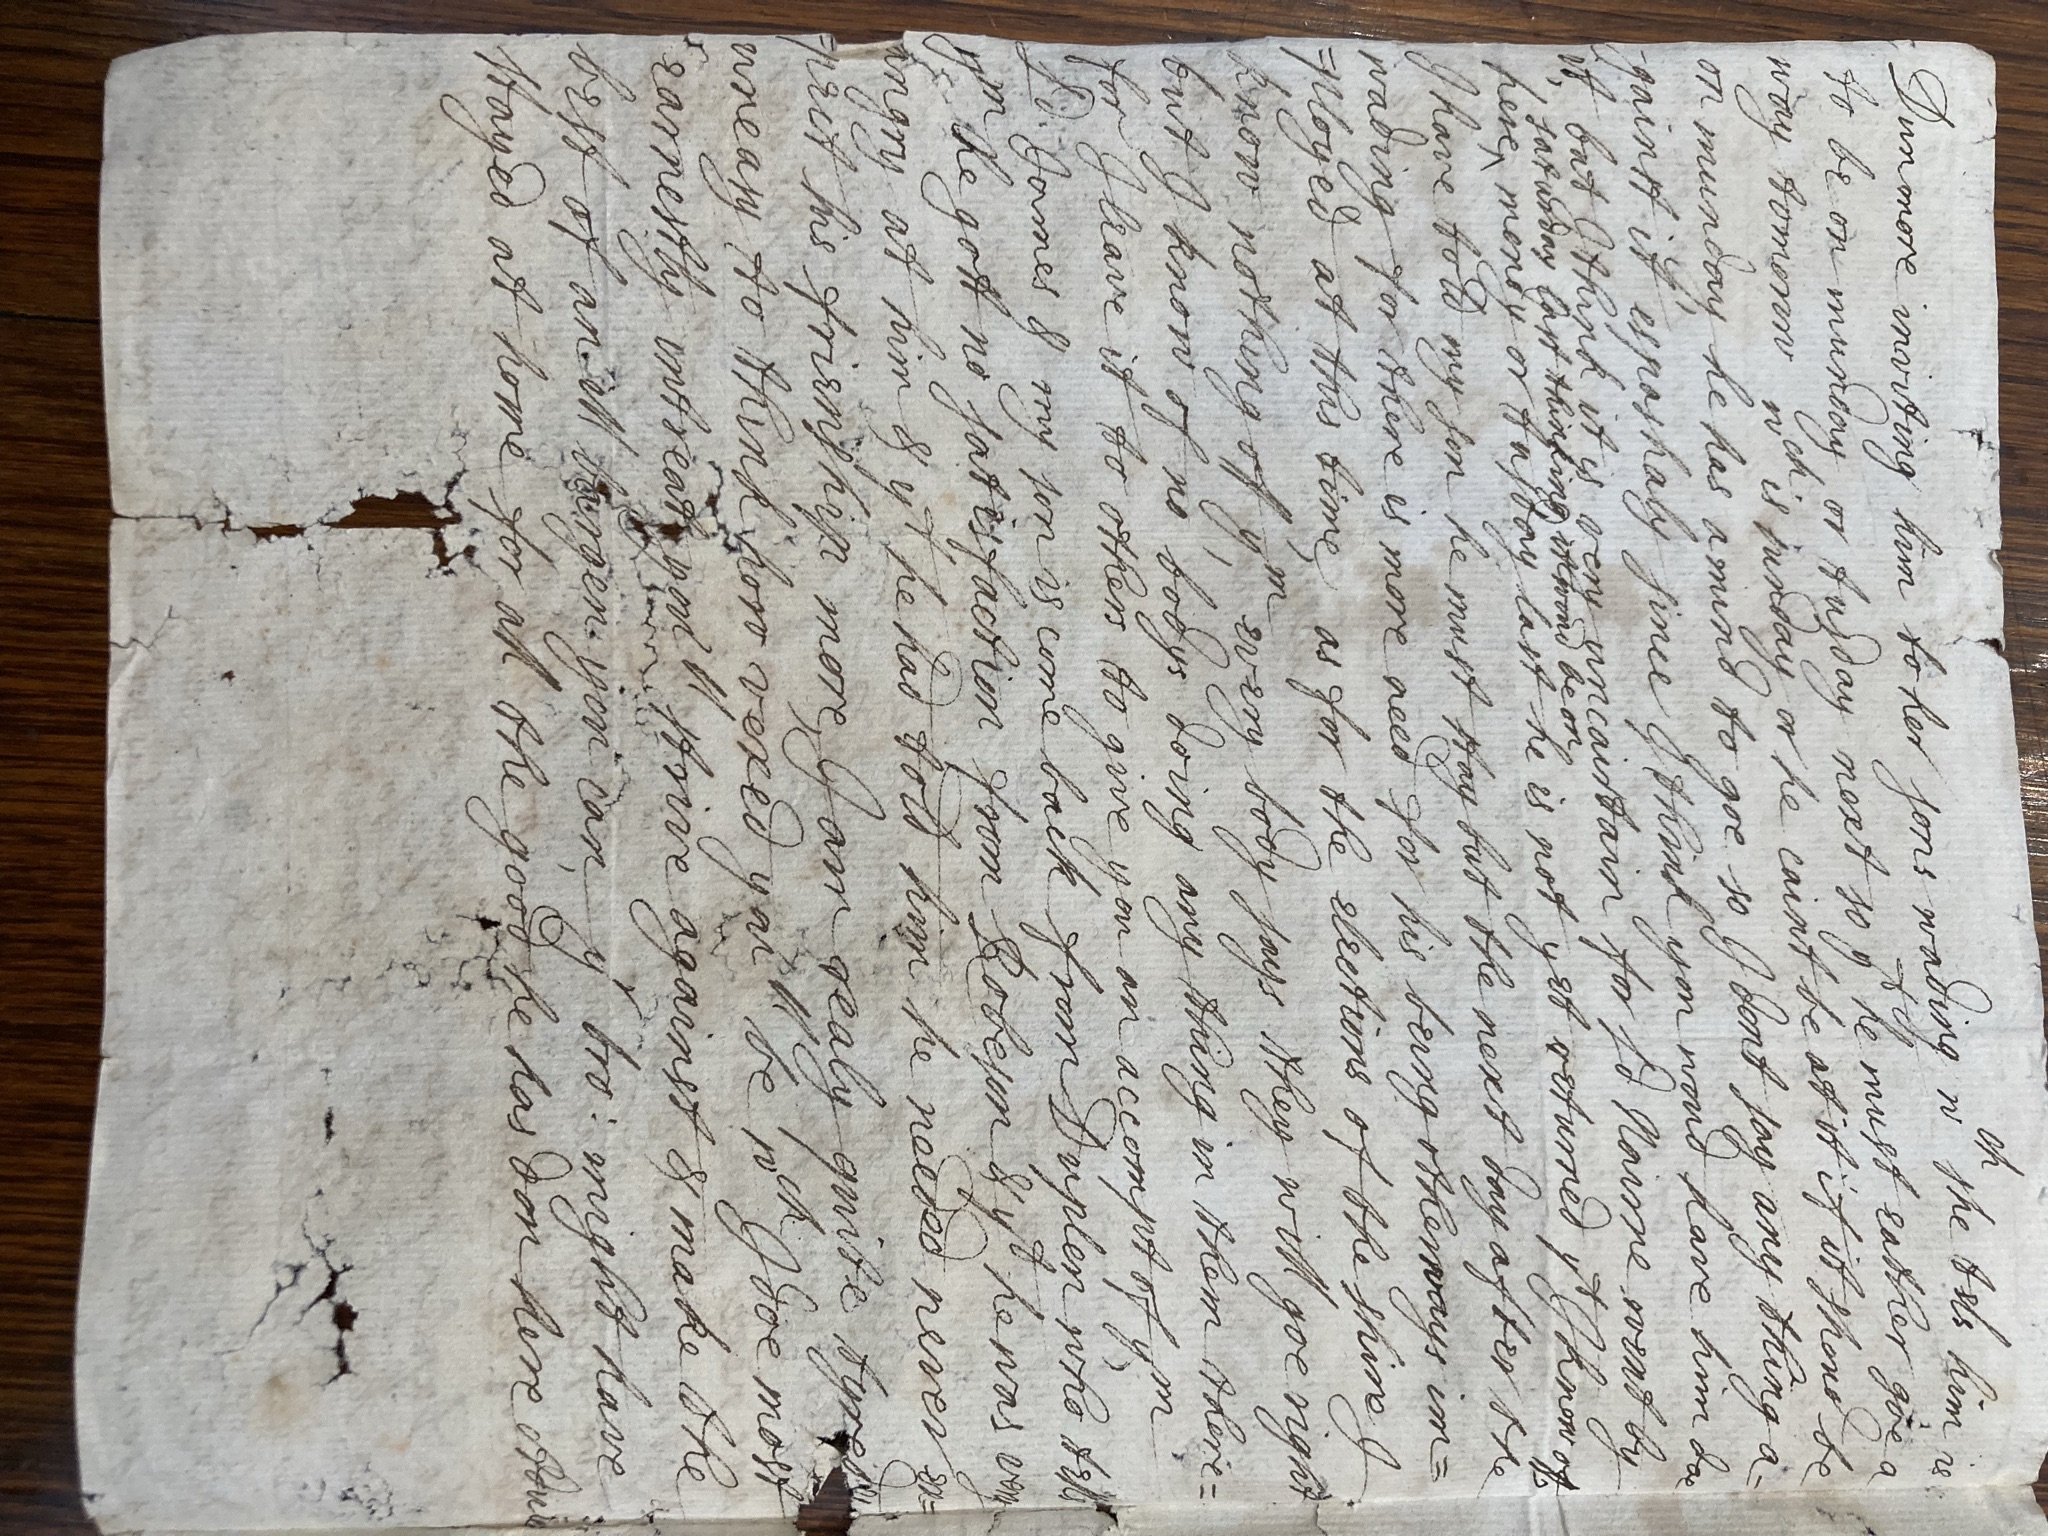 Dunmore inviting him to her sons wading wch she tels him is
to be on munday or tusday next so yt he must eather goe a
way tomorow wch is sunday or he caint be at it if it shoud be
on munday, he has a mind to goe so I dont say any thing a-
-gainst it espashaly since I think you woud have him doe
it, but I think it is very uncairtain for Ld Nairne went by
saturday last thinking it woud be on
here, ^ mondy or tusday last he is not yet returned yt I know off,
I have told my son he must stay but the next day after the
wading for there is more need for his being otherways im=
=ployed at this time, as for the elections of the shire I
know nothing off ym, every body says they will goe right
but I know of no bodys doing any thing in them there=
for I leave it to others to give you an accompt of ym,
Ld. James & my son is come back from Duplen who tells
ym he gott no satisfaction from Robeson & yt he was very
angry at him & yt he had told him he needed never ex=
=pect his frienship more, I am realy quite tyred &
uneasy to think how vexed you'll be wch I doe most
earnestly intreat you'll strive against & make the
best of an ill bargen you can, yr bro: might have
stayed at home for all the good he has don here Adue